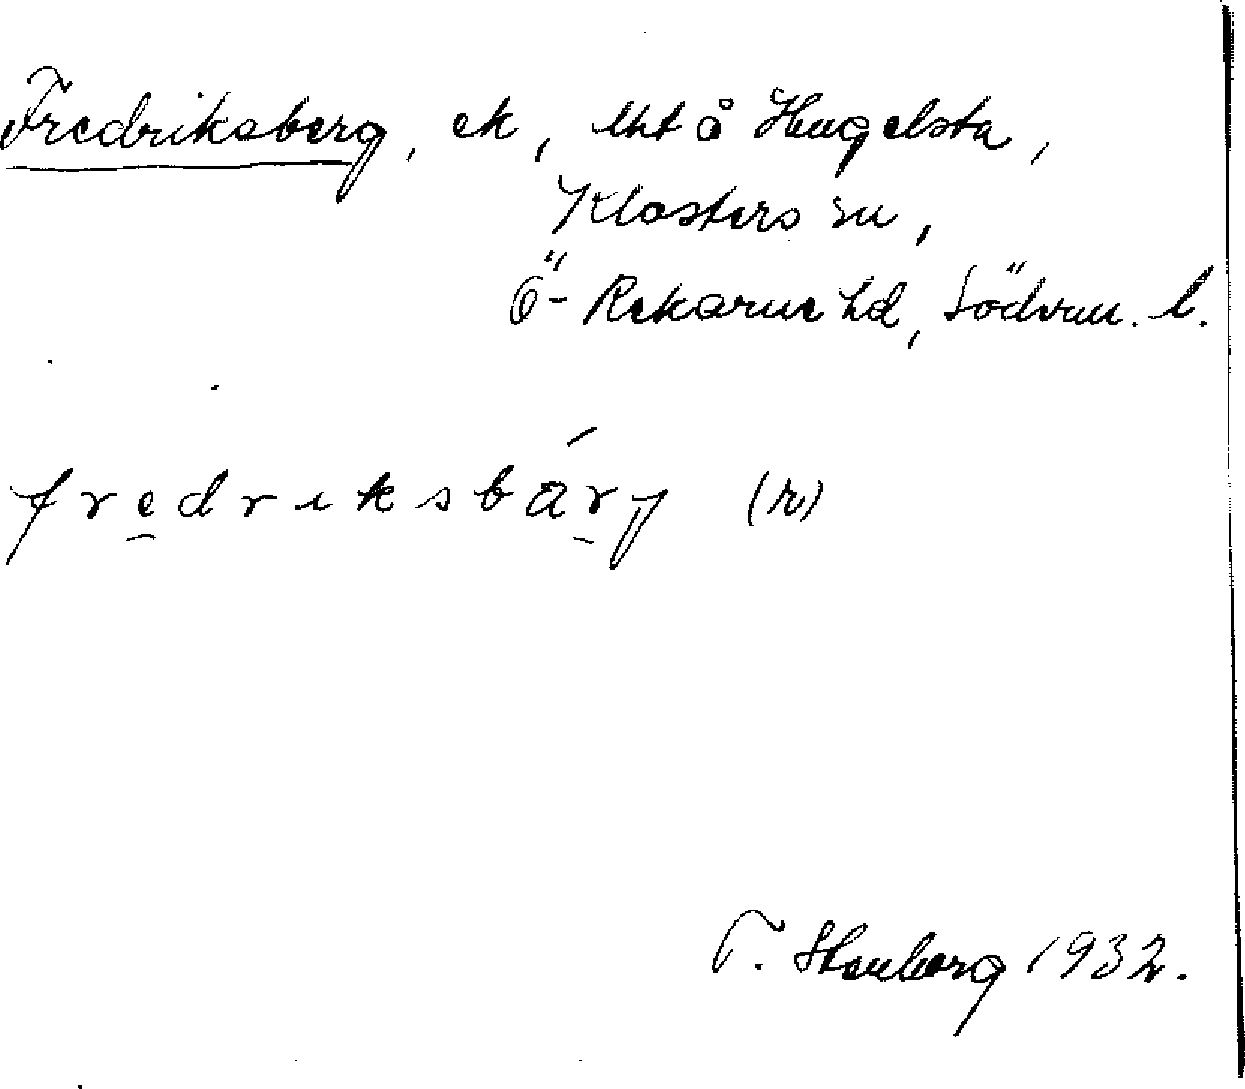 Fredriksberg, ek, lht å Hugelsta,
Klosters sn,
Ö-Rekarne hd, Södrm. l.
fredriksbárj (r)
T. Stenberg 1932.